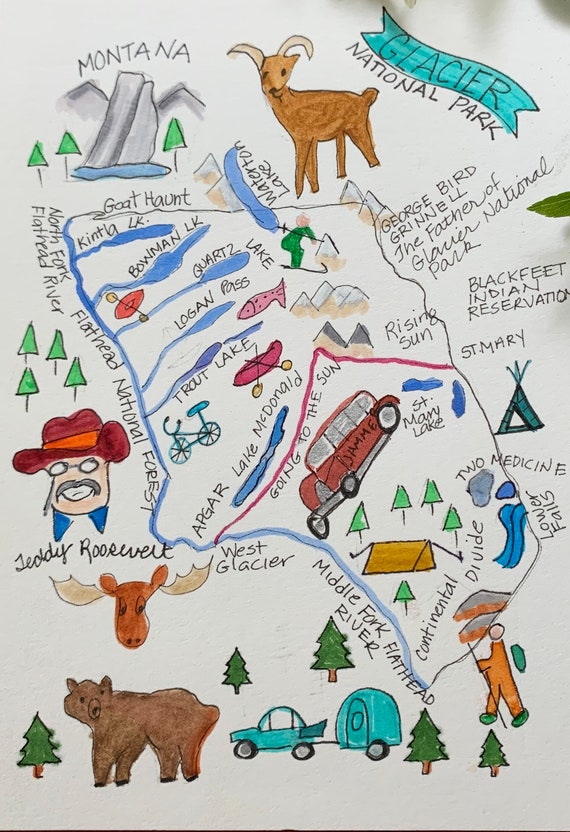 MONTANA
GLACIER
NATIONAL PARK
Goat Haunt
Waterton
Lake
GEORGE BIRD
GRINNELL
The Father of
Glacier National
Park
North Fork
Flathead River
Kintla LK.
BOWMAN LK
QUARTZ LAKE
LOGAN PASS
TROUT LAKE
BLACKFEET
INDIAN
RESERVATION
Rising
Sun
ST. MARY
St.
Mary
Lake
Flathead National FOREST
Lake McDonald
APGAR
GOING TO THE SUN
JAMMER
TWO MEDICINE
Lower
Falls
Teddy Roosevelt
West
Glacier
Middle Fork FLATHEAD
RIVER
Continental Divide